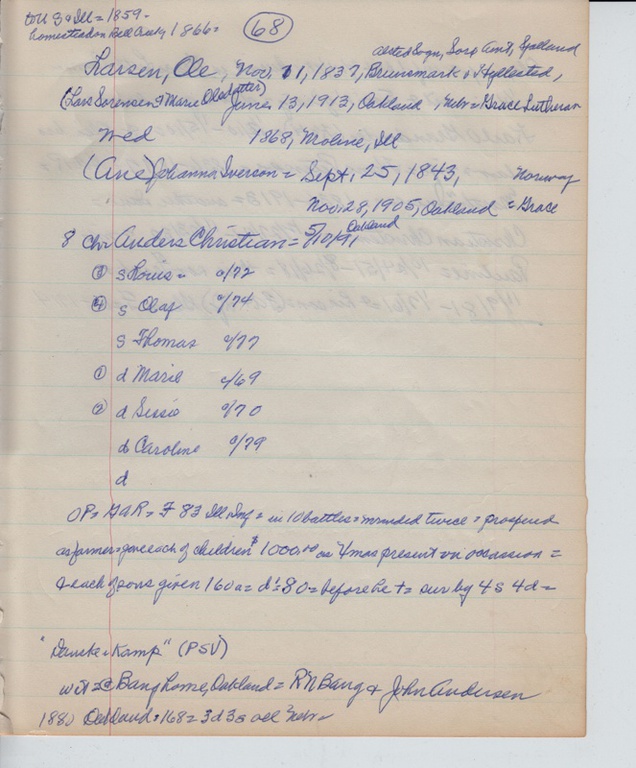 to U S & Ill = 1859 -
homestead on Bell Creek, 1866 =
68
Alsted Sogn, Sorø Amt, Sjalland
Larsen, Ole, Nov. 11, 1837, Brunsmark, Hyllested,
(Lars Sorensen & Marie Olesdatter) June 13, 1913, Oakland, Nebr = Grace Lutheran
Wed 1868, Moline, Ill
(Ane) Johanna Iverson = Sept. 25, 1843, Norway
Nov. 28, 1905, Oakland = Grace
8 chr Anders Christian = 5/10/91 Oakland
③ s Louis = c/72
④ s Olaf c/74
s Thomas c/77
① d Marie c/69
② d Sissie c/70
d Caroline c/79
d
OP = GAR = F 83 Ill Inf = in 10 battles = wounded twice = prospered
as farmer = gave each of children $1000.00 on Xmas present on occassion =
& each of sons given 160a = d's 80 = before he + = surv by 4s 4d =
"Danske i Kamp" (PSV)
wit = @ Bang home, Oakland = RN Bang & John Andersen
1880 Oakland = 168 = 3d 3s all Nebr =